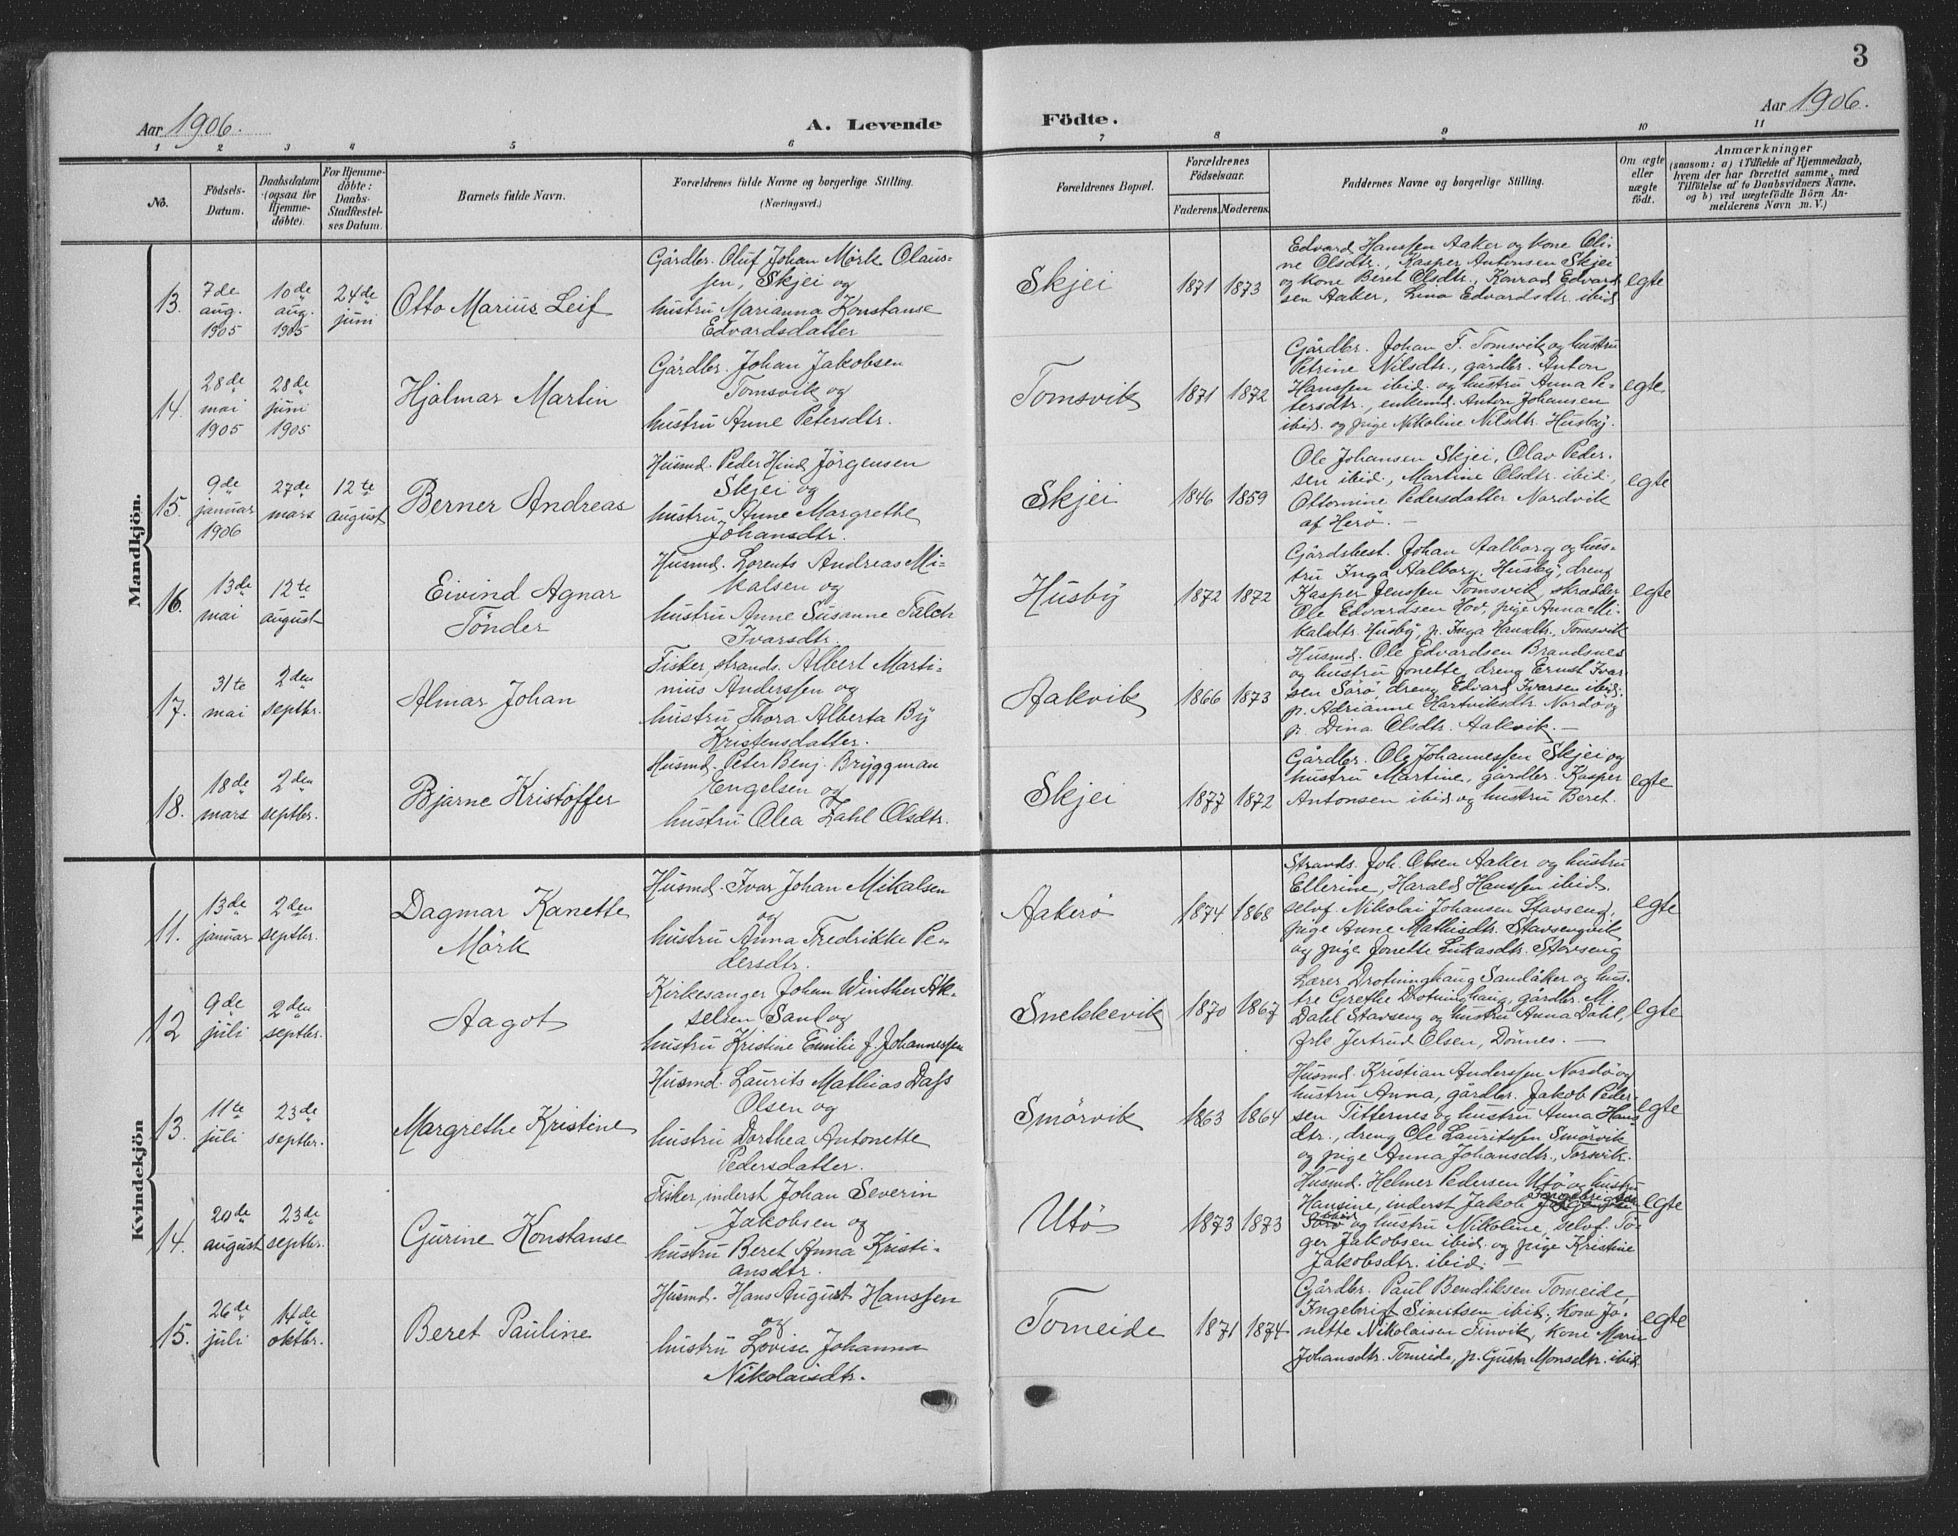 3
Aar 1906.
A. Levende
Födte.
Aar 1906.
1 2 3 4 5 6 7 8 9 10 11
No.
Födsels-
Datum.
Daabsdatum
(ogsaa for
Hjemme-
döbte).
For Hjemme-
döbte:
Daabs-
Stadfæstel-
ses Datum.
Barnets fulde Navn.
Forældrenes fulde Navne og borgerlige Stilling.
(Næringsvei.)
Forældrenes Bopæl.
Forældrenes
Födselsaar.
Faderens. Moderens.
Faddernes Navne og borgerlige Stilling.
Om ægte
eller
uægte
födt.
Anmærkninger
(saasom: a) i Tilfælde af Hjemmedaab,
hvem der har forrettet samme, med
Tilföielse af to Daabsvidners Navne.
og b) ved uægtefödte Börn An-
melderens Navn m. V.)
Mandkjön.
13.
7de
aug.
1905
10de
aug.
1905
24de
juni
Otto Marius Leif
Gårdbr. Oluf Johan Mörk Olaus-
sen, Skjei og
hustru Marianna Konstanse
Edvardsdatter
Skjei
1871 1873
Edvard Hanssen Aaker og kone Oli-
ne Olsdtr., Kasper Antonsen Skjei
og kone Beret Olsdtr., Konrad Edvard
sen Aaker, Lina Edvardsdtr. ibid.
egte
14.
28de
mai
1905
28de
juni
1905
Hjalmar Martin
Gårdbr. Johan Jakobsen
Tomsvik og
hustru Anne Petersdtr.
Tomsvik
1871 1872
Gårdbr. Johan F. Tomsvik og hustru
Petrine Nilsdtr., gårdbr. Anton
Hanssen ibid. og hustru Anna Pe-
tersdtr., enkemd. Anton Johansen
ibid. og pige Nikoline Nilsdtr. Husby.
egte
15.
9de
januar
1906
27de
mars
12te
august
Berner Andreas
Husmd. Peder Hind Jörgensen
Skjei og
hustru Anne Margrethe
Johansdtr.
Skjei
1846 1859
Ole Johansen Skjei, Olav Peder-
sen ibid., Martine Olsdtr. ibid.,
Ottomine Pedersdatter Nordvik
af Herö. —
egte
16.
13de
mai
12te
august
Eivind Agnar
Tönder
Husmd. Lorents Andreas Mi-
kalsen og
hustru Anne Susanne Falch
Ivarsdtr.
Husby
1872 1872
Gårdsbest. Johan Aalborg og hus-
tru Inga Aalborg, Husby, dreng
Kasper Jenssen Tomsvik, skrædder
Ole Edvardsen Hov, pige Anna Mi-
kalsdtr. Husby, p. Inga Hansdtr. Tomsvik
egte
17.
31te
mai
2den
septbr.
Almar Johan
Fisker, strands. Albert Marti-
nius Anderssen og
hustru Thora Alberta By
Kristensdatter.
Aakvik
1866 1873
Husmd. Ole Edvardsen Brandsnes
og hustru Jonette, dreng Ernst Ivar-
sen Sörö, dreng Edvard Ivarsen ibid.
p. Adrianne Hartviksdtr. Nordö og
p. Dina Olsdtr. Aakvik. —
18.
18de
mars
2den
septbr.
Bjarne Kristoffer
Husmd. Peter Benj. Bryggman
Engelsen og
hustru Olea Zahl Olsdtr.
Skjei
1877 1872
Gårdbr. Ole Johannessen Skjei og
hustru Martine, gårdbr. Kasper
Antonsen ibid og hustru Beret.
egte
Kvindekjön
11.
13de
januar
2den
septbr.
Dagmar Kanette
Mörk
Husmd. Ivar Johan Mikalsen
og
hustru Anna Fredrikke Pe-
dersdtr.
Aakerö
1874 1868
Strands. Joh. Olsen Aaker og hustru
Ellerine, Harald Hanssen ibid.
selvf. Nikolai Johansen Stavseng.
pige Anne Mathisdtr. Stavsengvik
og pige Jonette Lukasdtr. Stavseng
egte
12
9de
juli
2den
septbr.
Aagot
Kirkesanger Johan Winther Ak-
selsen Sand og
hustru Kristine Emilie f. Johannessen
Snekkevik
1870 1867
Lærer Drotninghaug Sandåker og hus-
tre Grethe Drotninghaug, gårdbr. M.
Dahl Stavseng og hustru Anna Dahl,
frk Jertrud Olsen, Dönnes. —
egte
13.
11te
juli
23de
septbr.
Margrethe Kristine
Husmd. Laurits Mathias Dass
Olsen og
hustru Dorthea Antonette
Pedersdatter.
Smörvik
1863 1864
Husmd. Kristian Anderssen Nordö og
hustru Anna, gårdbr. Jakob Peder-
sen Titternes og hustru Anna Hans-
dtr., dreng Ole Lauritssen Smörvik
og pige Anna Johansdtr., Torsvik.
egte
14.
20de
august
23de
septbr.
Gurine Konstanse
Fisker, inderst Johan Severin
Jakobsen og
hustru Beret Anna Kristi-
ansdtr.
Utö
1873 1873
Husmd. Helmer Pedersen Utö og hustru
Hansine, inderst Jakob Ingebrigtsen
ibid og hustru Nikoline, selvf. To-
ger Jakobsen ibid. og pige Kristine
Jakobsdtr. ibid. —
egte
15.
26de
juli
14de
oktbr.
Beret Pauline
Husmd. Hans August Hanssen
og
hustru Lovise Johanna
Nikolaisdtr.
Tomeide
1871 1874
Gårdbr. Paul Bendiksen Tomeide,
Ingebrigt Sivertsen ibid., kone Jo-
nette Nikolaisen Finvik, kone Marie
Johansdtr. Tomeide, p. Gusta Monsdtr. ibid
egte